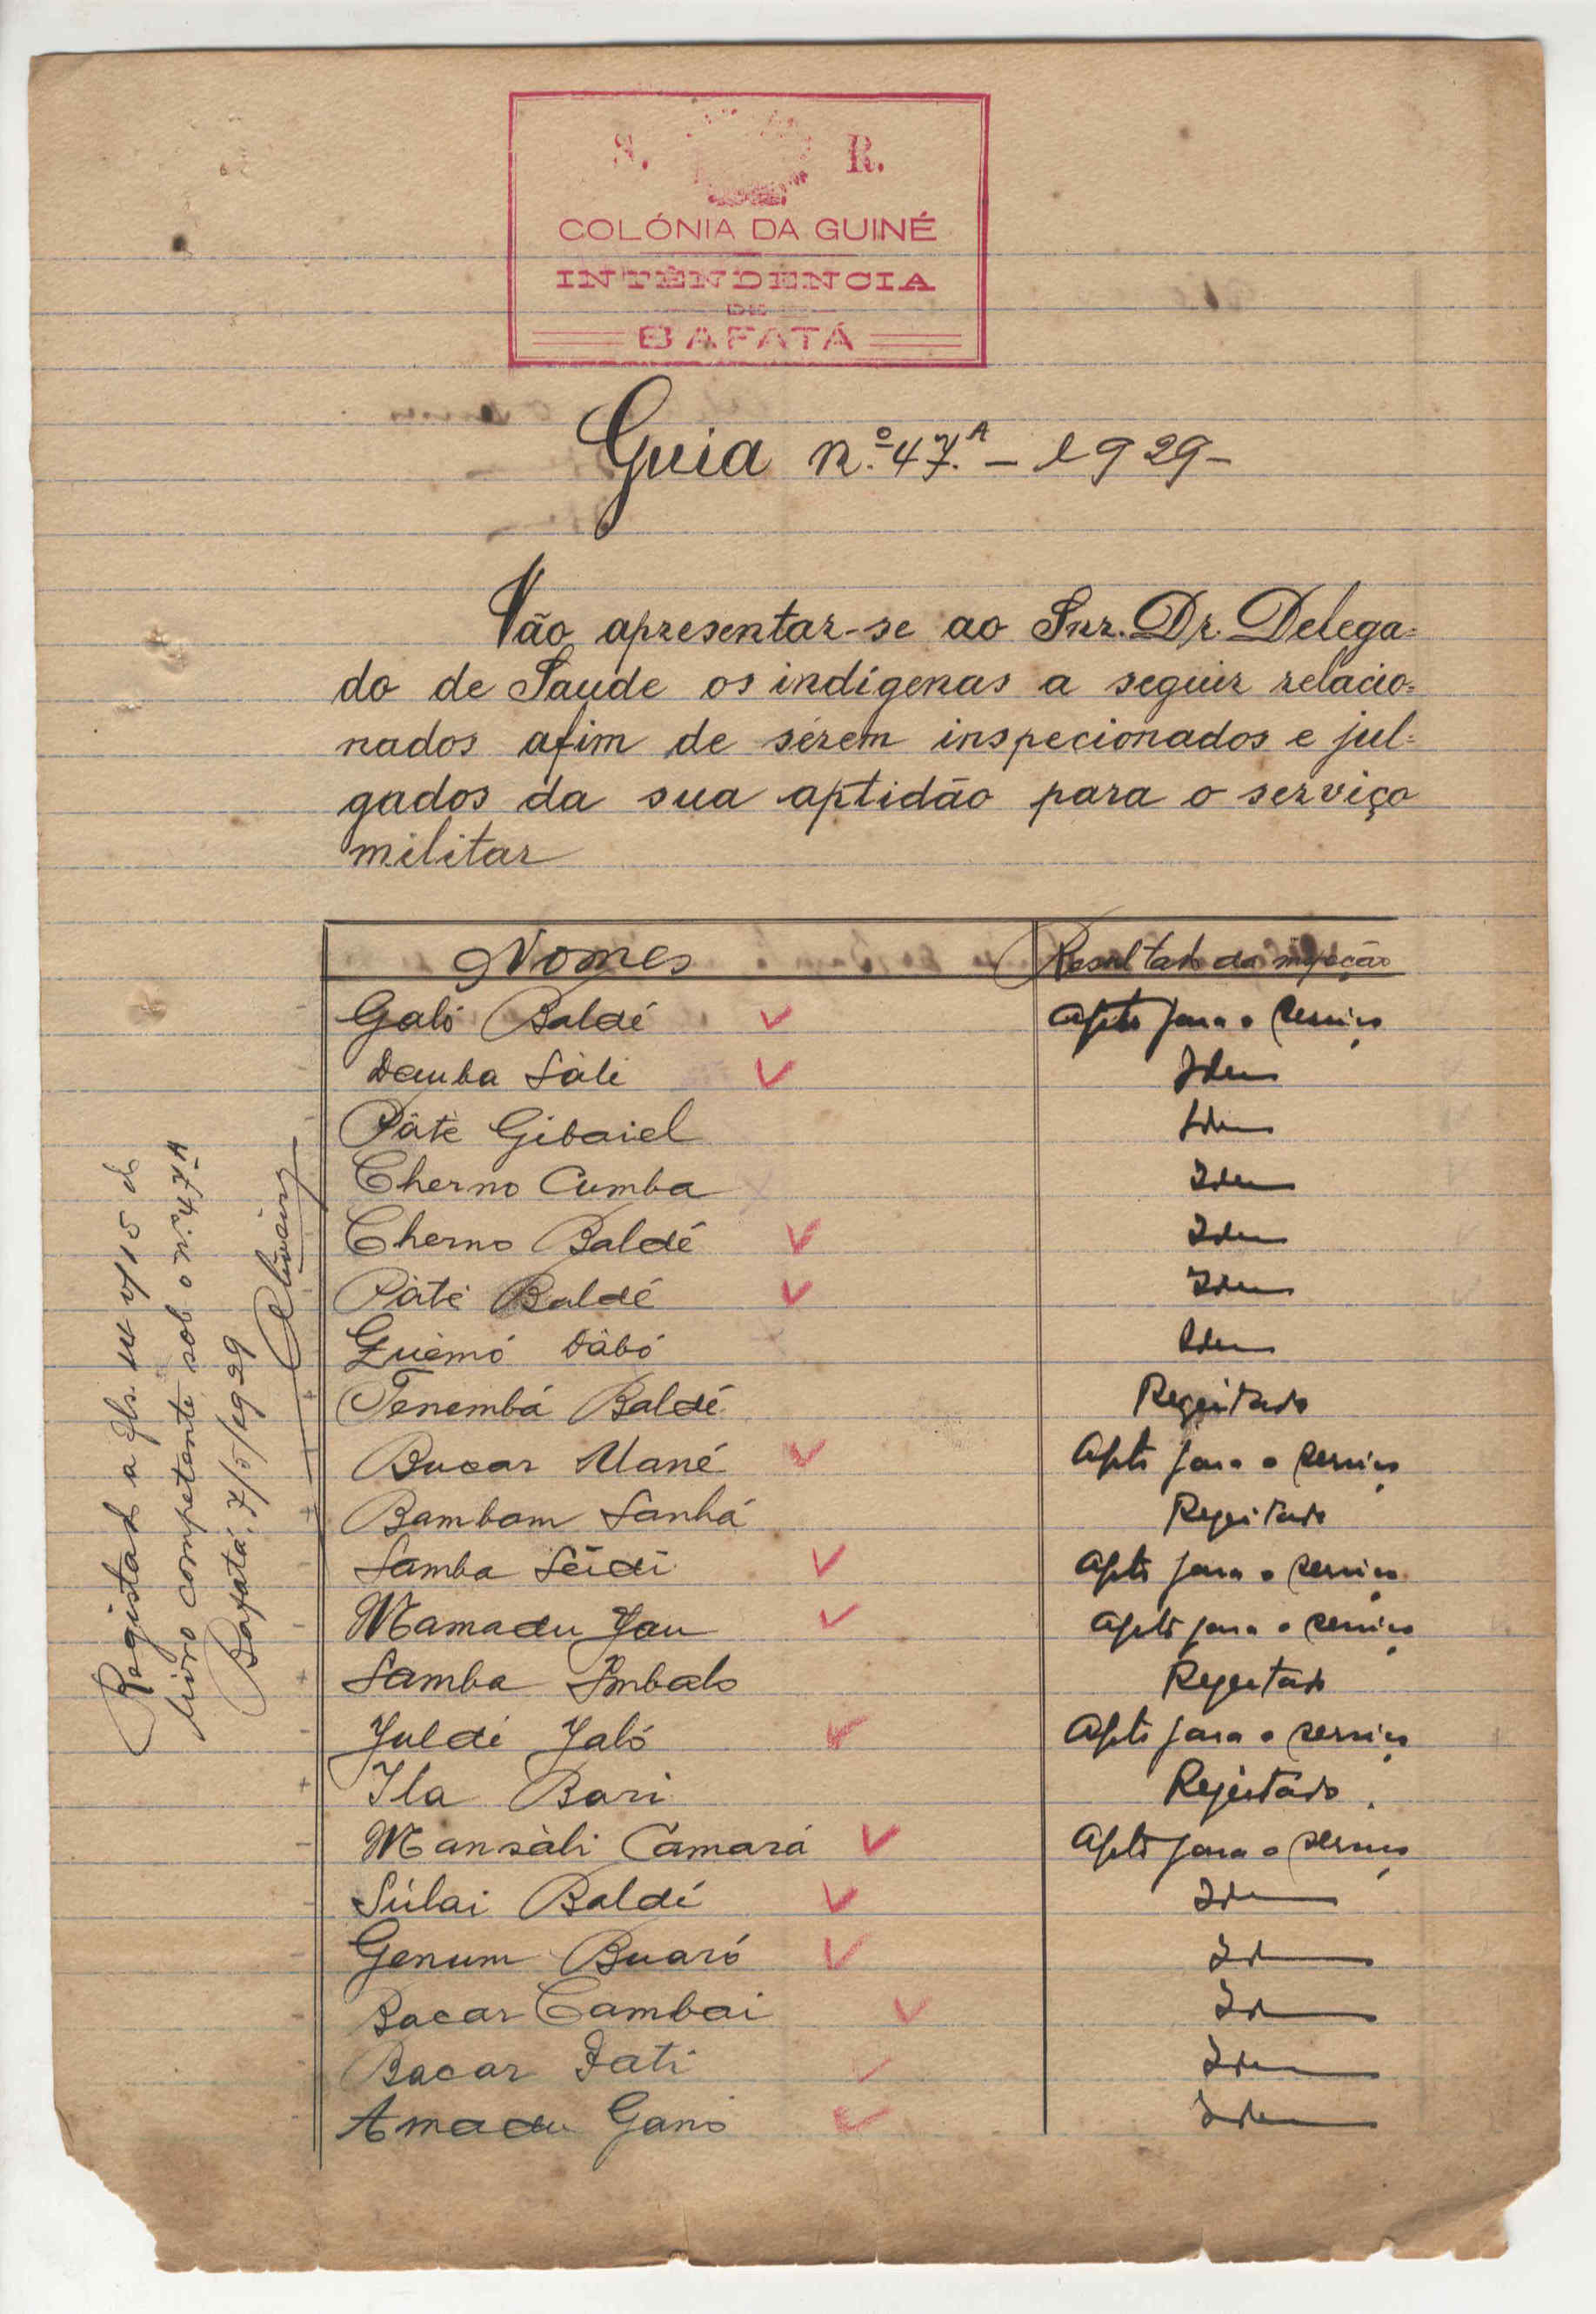 S. R.
COLÓNIA DA GUINÉ
INTENDENCIA
DE
BAFATÁ
Guia n.º 47.A - 1929 -
Vão apresentar-se ao Snr. Dr. Delega=
do de Saude os indígenas a seguir relacio=
nados afim de sérem inspecionados e jul=
gados da sua aptidão para o serviço
militar
Nomes Resultado da inspeção
Galó Baldé Apto para o serviço
Demba Sàli Idem
Pâte Gibaiel Idem
Cherno Cumba Idem
Cherno Baldé Idem
Pàté Baldé Idem
Quèmó Dàbó Idem
Tenembá Baldé Regeitado
Bucar Mané Apto para o serviço
Bambam Sanhá Regeitado
Samba Seidi Apto para o serviço
Mamadu Jau Apto para o serviço
Samba Embaló Regeitado
Juldé Jaló Apto para o serviço
Ila Bari Rejeitado
Mansàli Camará Apto para o serviço
Súlai Baldé Idem
Genum Buaró Id
Bacar Cambai Id
Bacar Fati Idem
Amadu Gano Idem
Registado a fls. 14 v/15 do
livro competente sob o n.º 47A
Bafatá, 7/5/1929